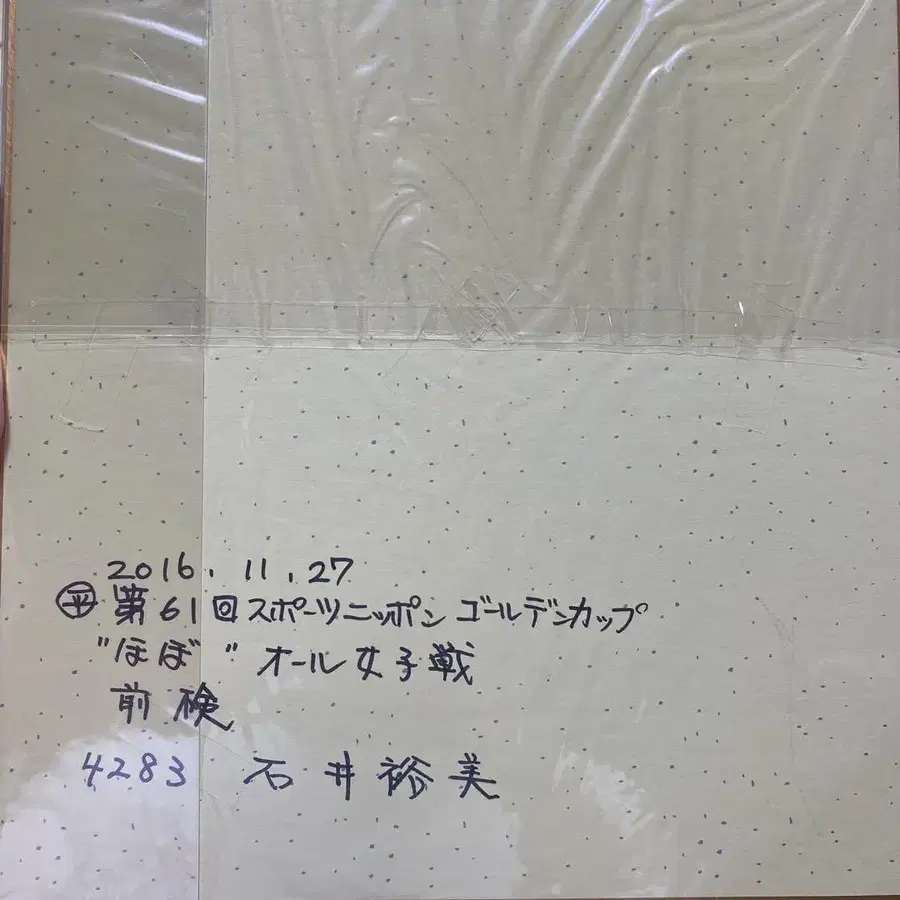 2016.11.27
㊗第61回スポーツニッポンゴールデンカップ
"ほぼ"オール女子戦
前検
4283 石井裕美